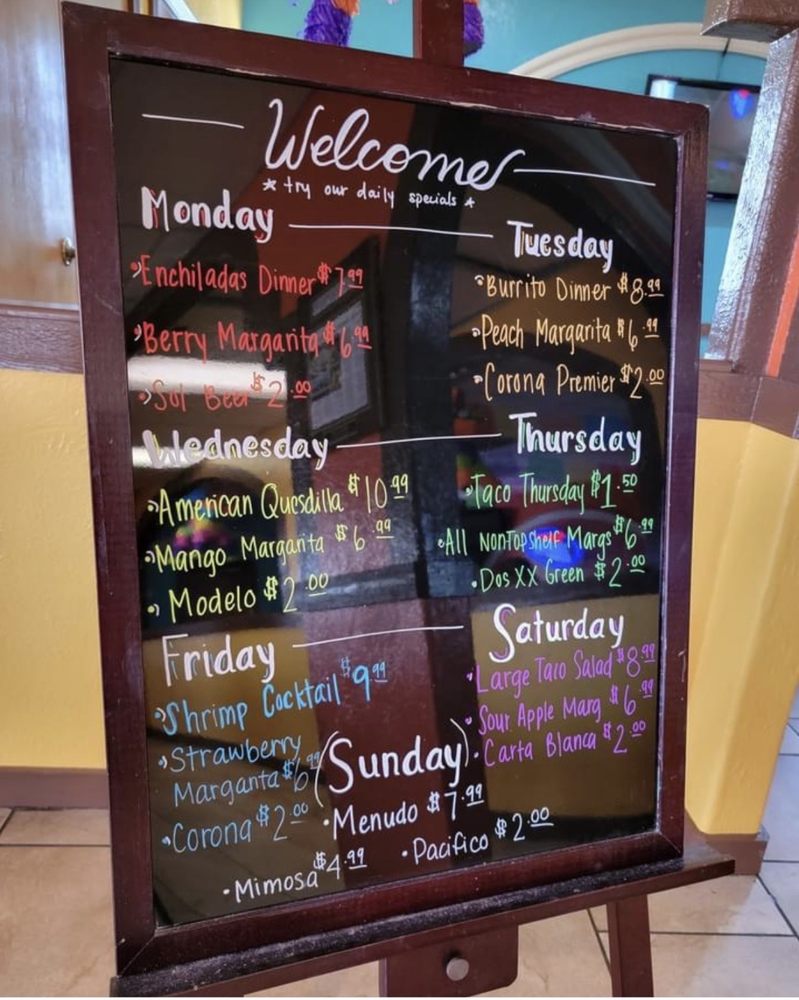 Welcome
* try our daily specials *
Monday
• Enchiladas Dinner $7.99
• Berry Margarita $6.99
• Sol Beer $2.00
Tuesday
• Burrito Dinner $8.99
• Peach Margarita $6.99
• Corona Premier $2.00
Wednesday
• American Quesdilla $10.99
• Mango Margarita $6.99
• Modelo $2.00
Thursday
• Taco Thursday $1.50
• All NonTopShelf Margs $6.99
• Dos XX Green $2.00
Friday
• Shrimp Cocktail $9.99
• Strawberry
Margarita $6.99
• Corona $2.00
Saturday
• Large Taco Salad $8.99
• Sour Apple Marg $6.99
• Carta Blanca $2.00
(Sunday)
• Menudo $7.99
• Mimosa $4.99
• Pacifico $2.00